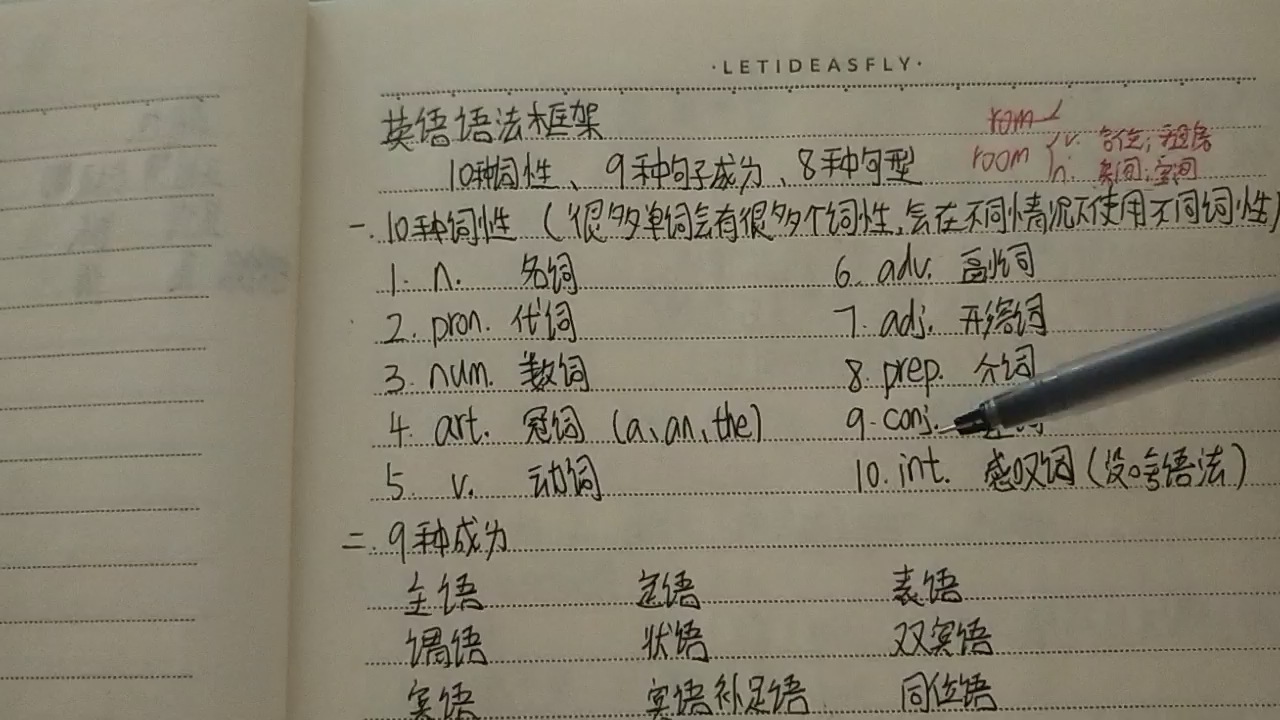 ·LETIDEASFLY·
英语语法框架
10种词性、9种句子成分、8种句型
room
room
v. 合住;租房
n. 房间;空间
一.10种词性(很多单词会有很多个词性,会在不同情况下使用不同词性)
1. n. 名词
6. adv. 副词
2. pron. 代词
7. adj. 形容词
3. num. 数词
8. prep. 介词
4. art. 冠词 (a、an、the)
9. conj.
5. v. 动词
10. int. 感叹词(没啥语法)
二.9种成分
主语 定语 表语
谓语 状语 双宾语
宾语 宾语补足语 同位语